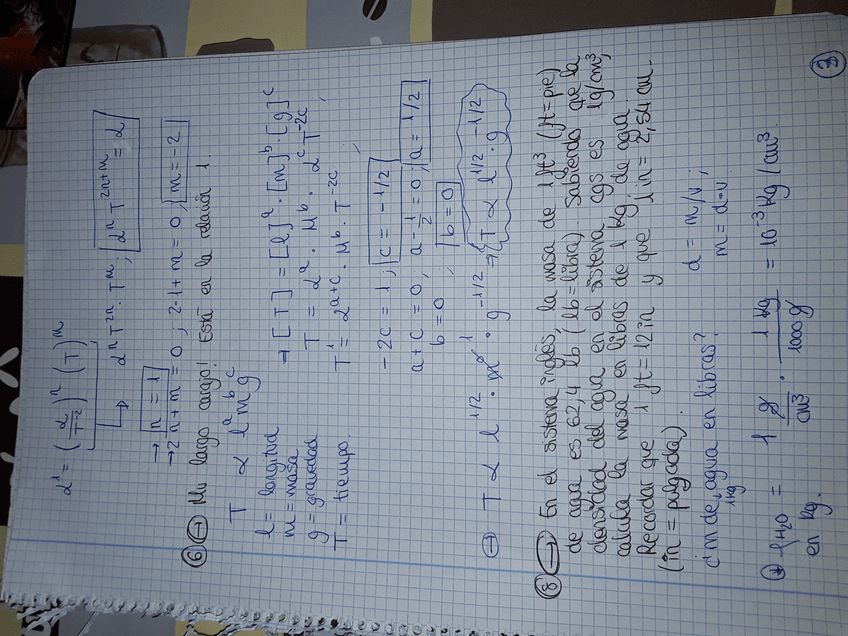 L¹ = (L/T⁻²)ⁿ (T)ᵐ
Lⁿ T²ⁿ · Tᵐ ; LⁿT²ⁿ⁺ᵐ = L
→ n = 1
→ 2n + m = 0 ; 2·1 + m = 0 ; m = -2
⑥ → Me largo carajo! Está en la relación 1.
T ∝ lᵃ mᵇ gᶜ
l = longitud
m = masa
g = gravedad
T = tiempo.
→ [T] = [l]ᵃ · [m]ᵇ · [g]ᶜ
T = Lᵃ · Mᵇ · Lᶜ T⁻²ᶜ ;
T¹ = Lᵃ⁺ᶜ · Mᵇ · T⁻²ᶜ ;
-2c = 1 ; c = -1/2
a + c = 0 ; a - 1/2 = 0 ; a = 1/2
b = 0 ; b = 0
→ T ∝ l¹/² · m⁰ · g⁻¹/² ⇒ T ∝ l¹/² · g⁻¹/²
⑧ → En el sistema inglés, la masa de 1 ft³ (ft = pie)
de agua es 62,4 lb (lb = libra). Sabiendo que la
densidad del agua en el sistema cgs es 1g/cm³,
calcula la masa en libras de 1 kg de agua.
Recordar que 1 ft = 12 in y que 1 in = 2,54 cm.
(in = pulgada).
¿m de 1kg agua en libras? d = m/v ;
m = d·v
⊛ ρH2O = 1 g/cm³ · 1 kg/1000 g = 10⁻³ kg/cm³.
en kg.
3